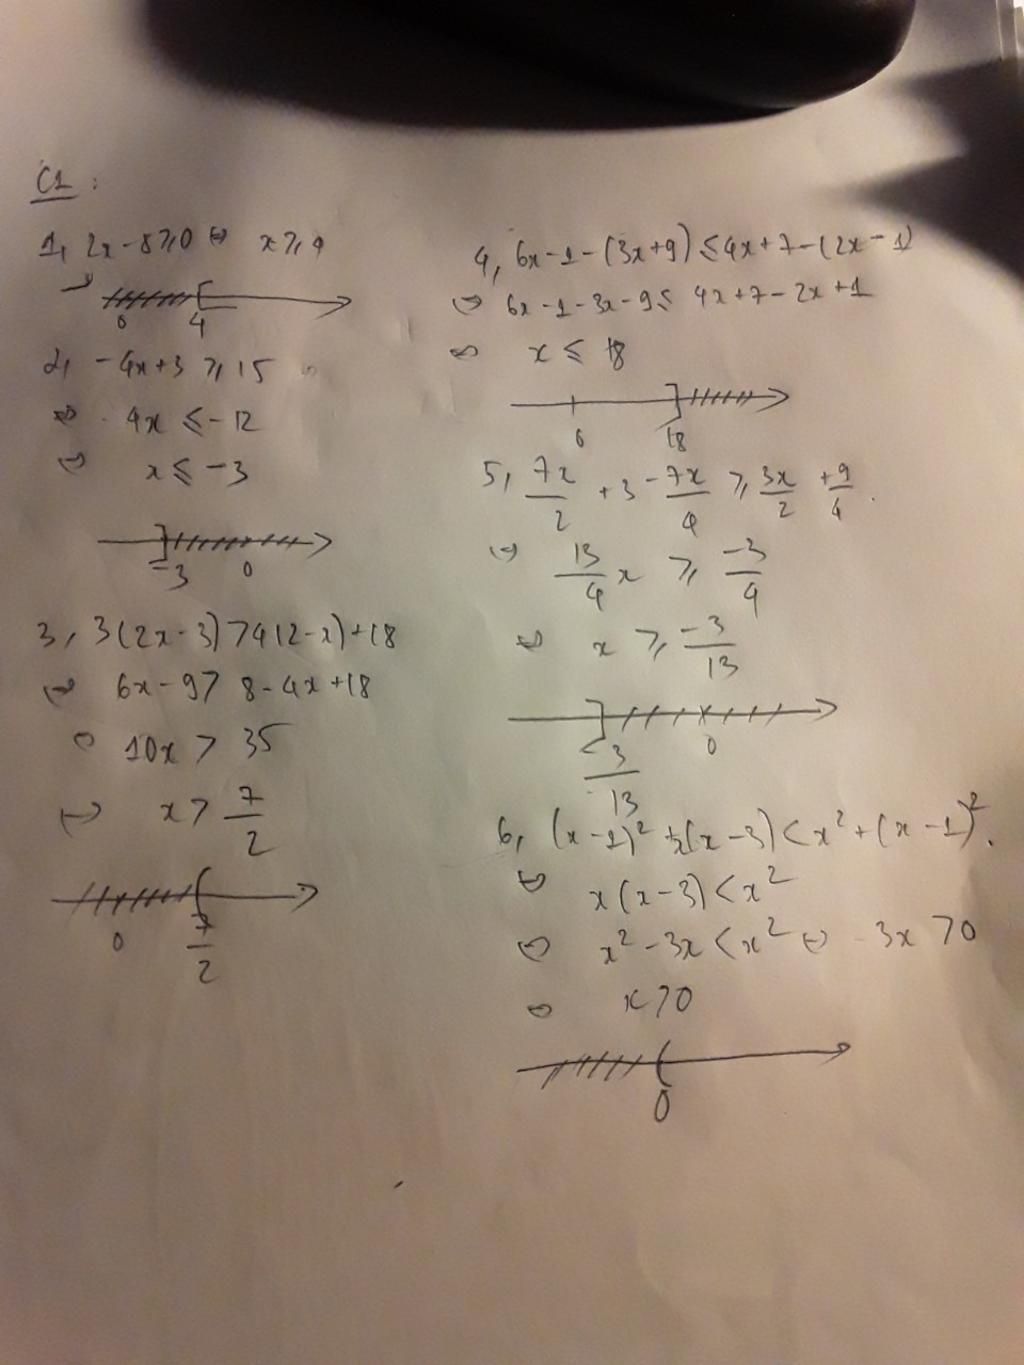 C1 :
1, 2x - 8 ⩾ 0 ⇔ x ⩾ 4
0 4
2, -4x+3 ⩾ 15
⇔ 4x ⩽ -12
⇔ x ⩽ -3
-3 0
3, 3(2x-3) > 4(2-x)+18
⇔ 6x-9 > 8-4x+18
⇔ 10x > 35
⇔ x > 7/2
0 7/2
4, 6x-1-(3x+9) ⩽ 4x+7-(2x-1)
⇔ 6x-1-3x-9 ⩽ 4x+7-2x+1
⇔ x ⩽ 18
0 18
5, 7x/2 + 3 - 7x/4 ⩾ 3x/2 + 9/4
⇔ 13/4 x ⩾ -3/4
⇔ x ⩾ -3/13
-3/13 0
6, (x-1)² + x(x-3) < x² + (x-1)².
⇔ x(x-3) < x²
⇔ x² - 3x < x² ⇔ 3x > 0
⇔ x > 0
0